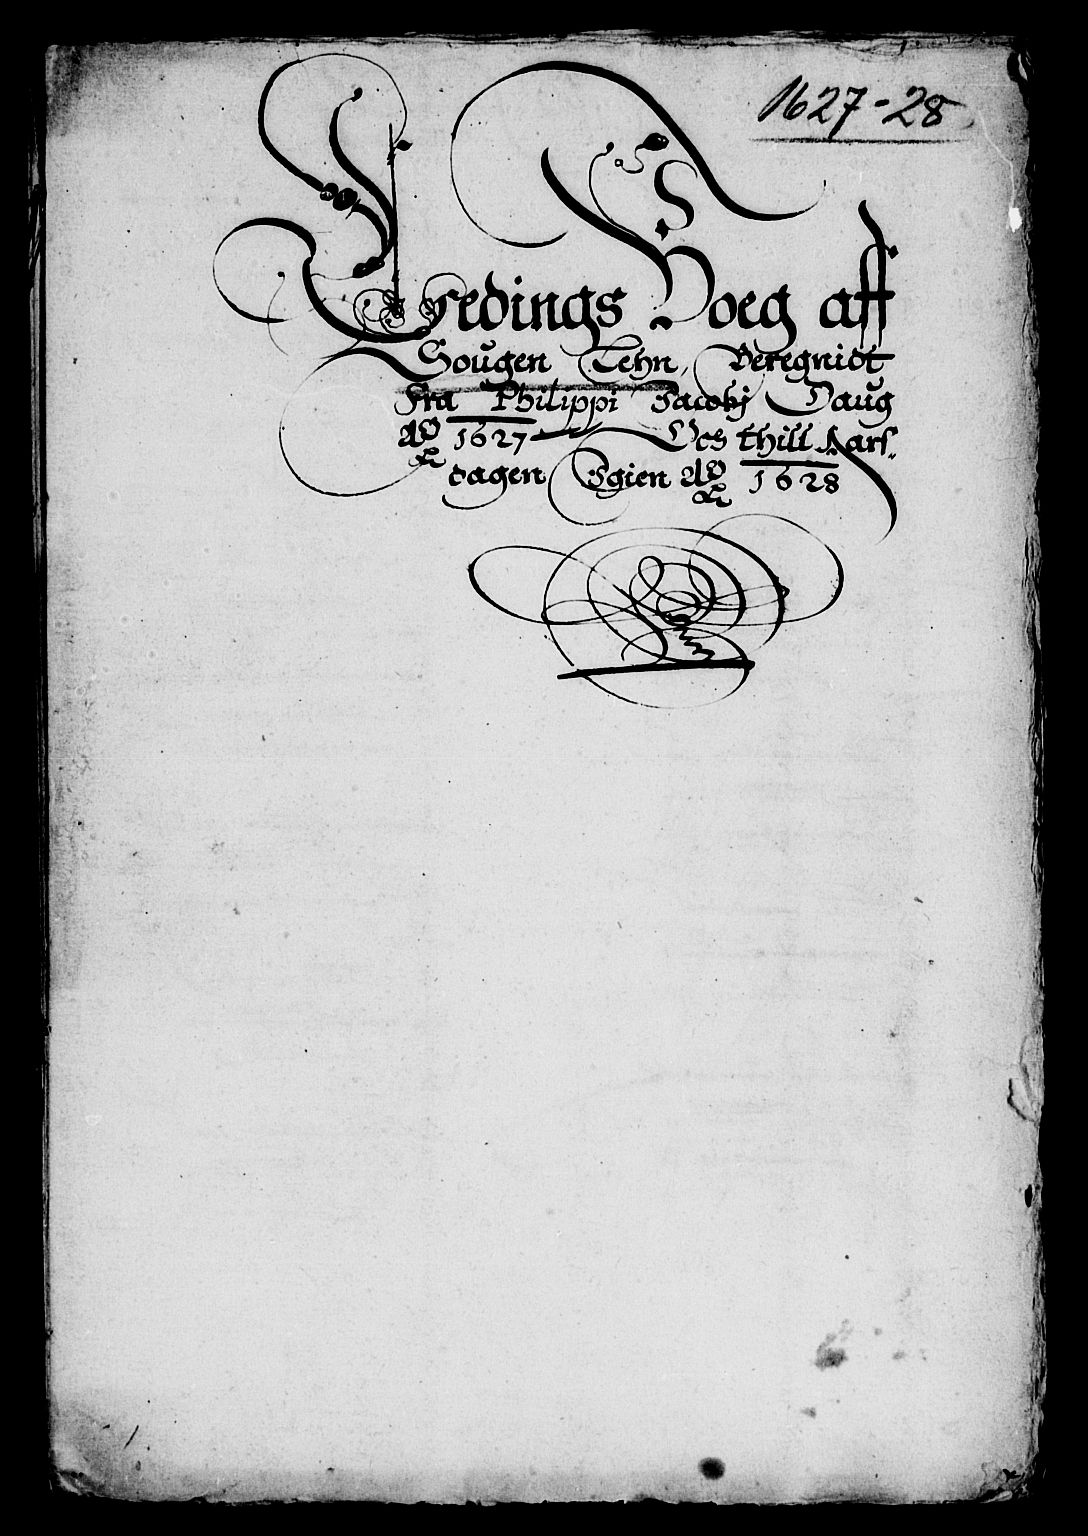 1627-28
Tredings Boeg aff
Sougen Lehn, Beregnidt
Fra Philippi Jacobj Daug
Ao 1627 Och thill Aars
dagen Igien Ao 1628